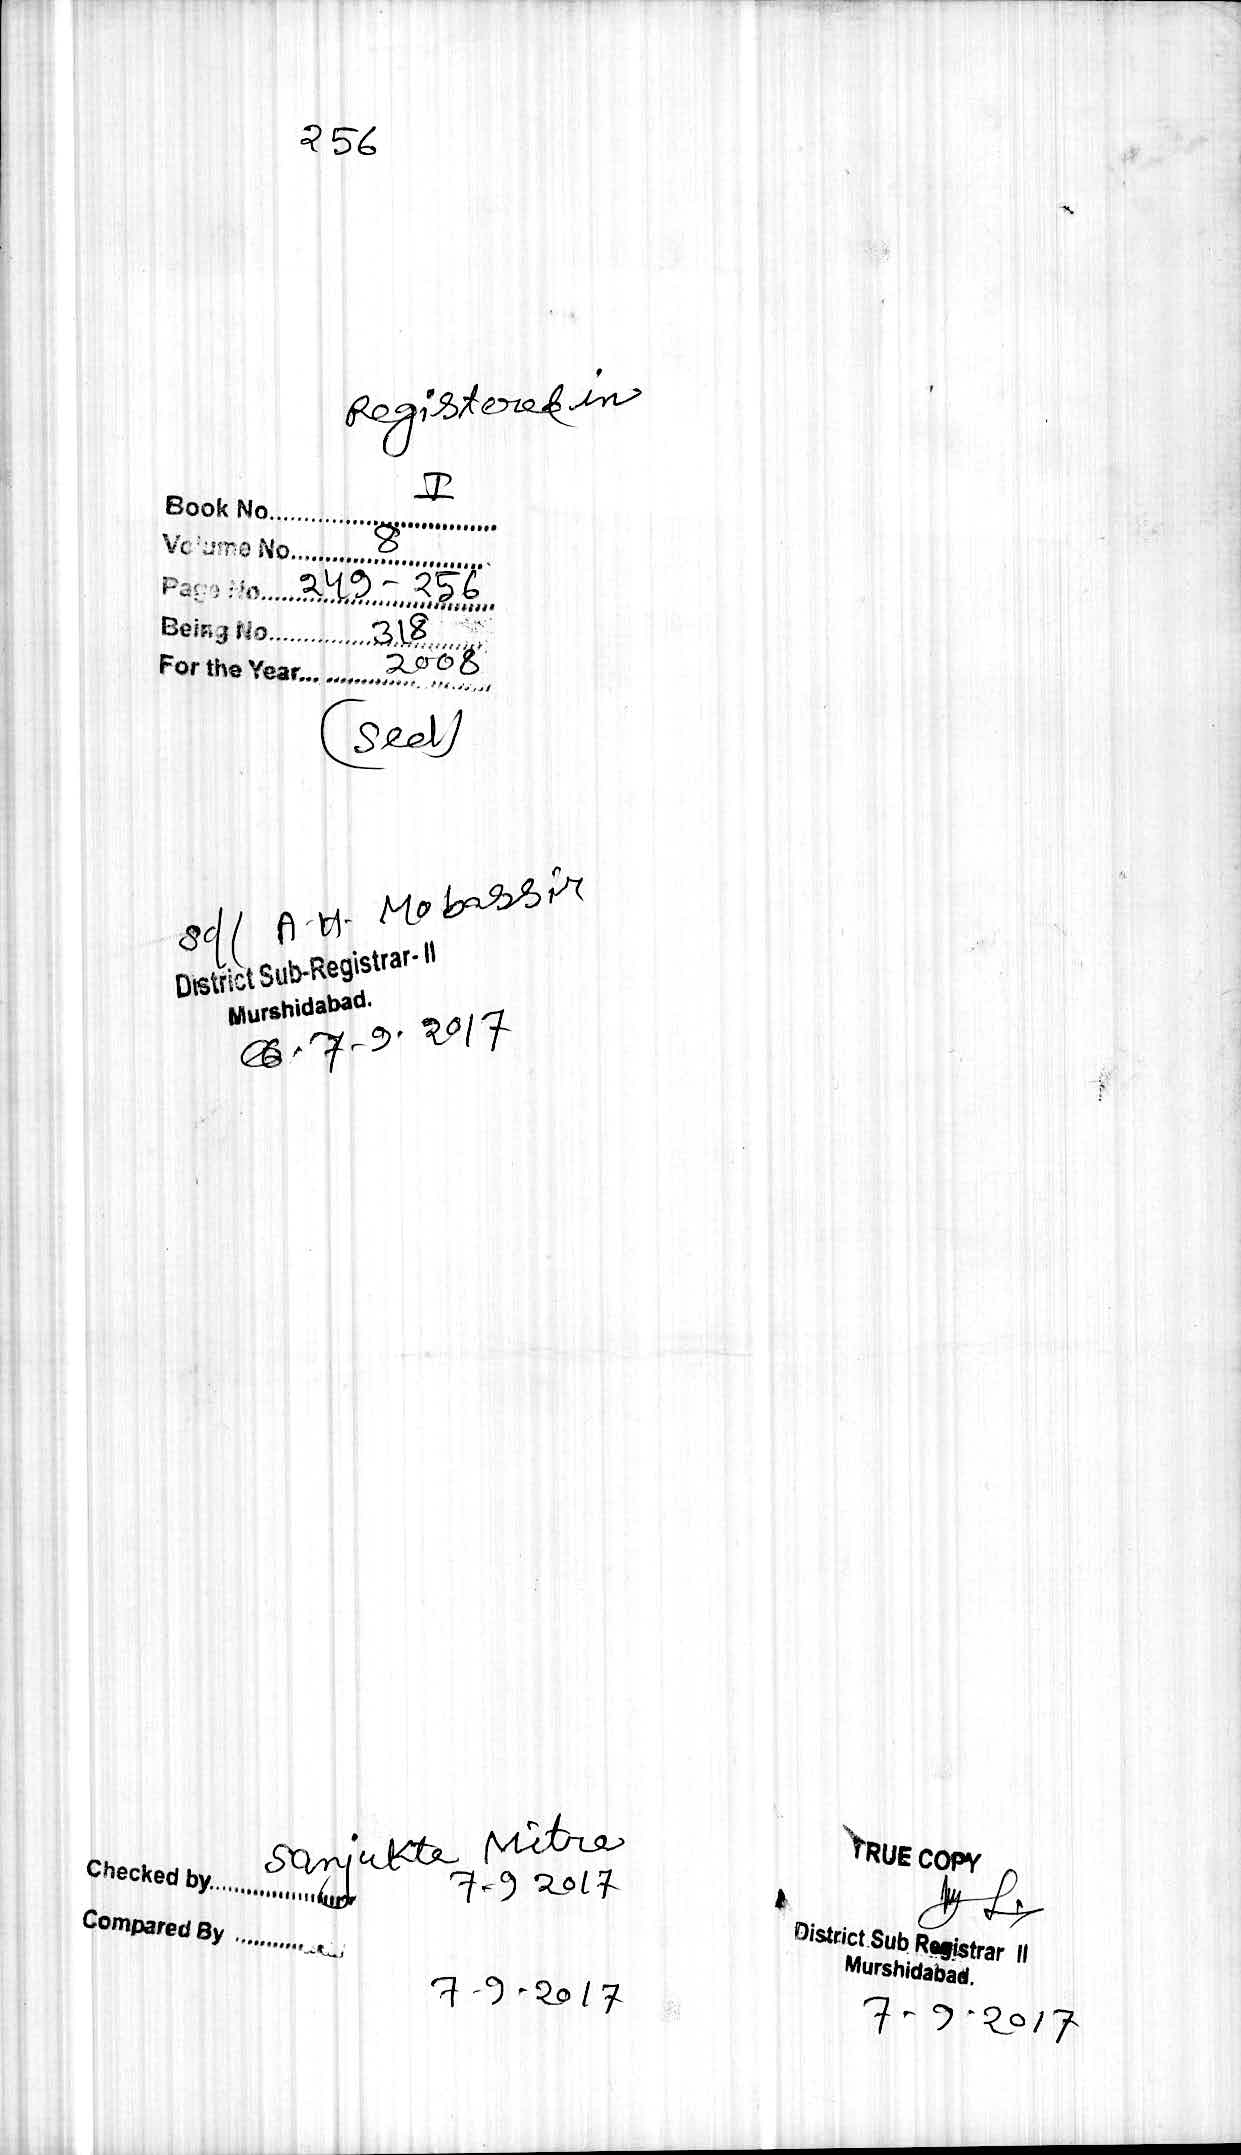 256
Registered in
Book No. I
Volume No. 8
Page No. 249 - 256
Being No. 318
For the Year... 2008
(Seal)
Sd/ A.H. Mobassir
District Sub-Registrar- II
Murshidabad.
7-9. 2017
Sanjukta Mitra
Checked by 7-9 2017
Compared By
7-9-2017
TRUE COPY
District Sub Registrar II
Murshidabad.
7-9-2017